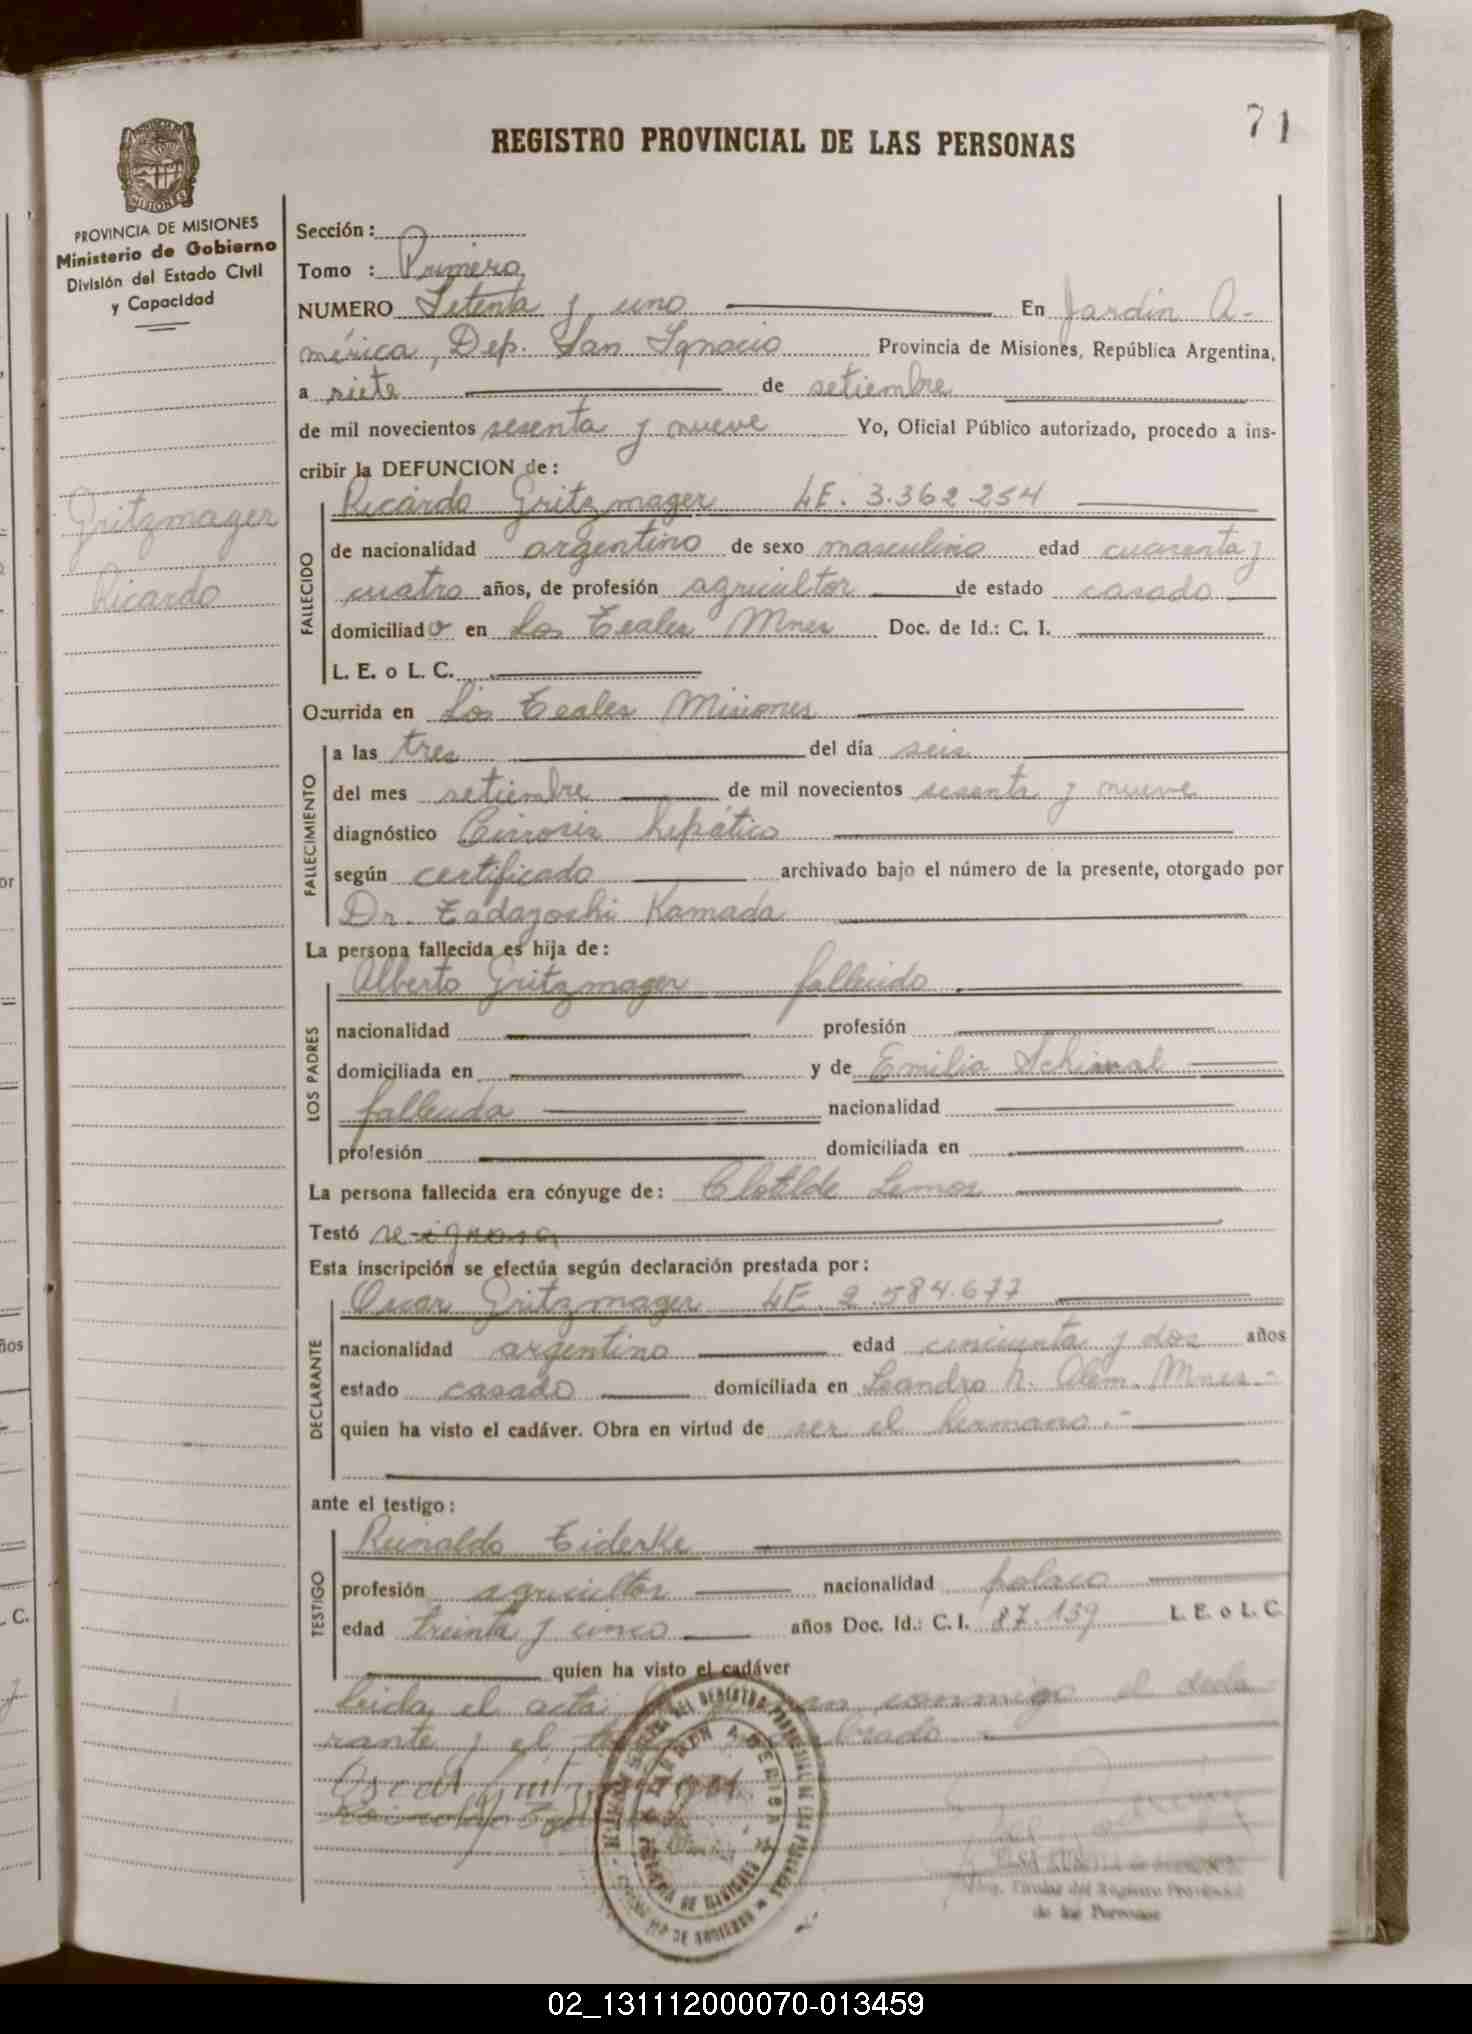 71
REGISTRO PROVINCIAL DE LAS PERSONAS
MISIONES
PROVINCIA DE MISIONES
Ministerio de Gobierno
División del Estado Civil
y Capacidad
Gritzmager
Ricardo
Sección :
Tomo : Primero
NUMERO Setenta y uno En Jardín A-
mérica, Dep. San Ignacio Provincia de Misiones, República Argentina,
a siete de setiembre
de mil novecientos sesenta y nueve Yo, Oficial Público autorizado, procedo a ins-
cribir la DEFUNCION de :
FALLECIDO
Ricardo Gritzmager LE. 3.362.254
de nacionalidad argentino de sexo masculino edad cuarenta y
cuatro años, de profesión agricultor de estado casado
domiciliado en Los Teales Mnes Doc. de Id.: C. I.
L. E. o L. C.
Ocurrida en Los Teales Misiones
FALLECIMIENTO
a las tres del día seis
del mes setiembre de mil novecientos sesenta y nueve
diagnóstico Cirrosis hepática
según certificado archivado bajo el número de la presente, otorgado por
Dr. Tadayoshi Kamada
La persona fallecida es hija de :
LOS PADRES
Alberto Gritzmager fallecido
nacionalidad profesión
domiciliada en y de Emilia
fallecida nacionalidad
profesión domiciliada en
La persona fallecida era cónyuge de : Clotilde Lemos
Testó se ignora
Esta inscripción se efectúa según declaración prestada por :
DECLARANTE
Oscar Gritzmager LE. 2.584.677
nacionalidad argentino edad cincuenta y dos años
estado casado domiciliada en Leandro N. Alem. Mnes.-
quien ha visto el cadáver. Obra en virtud de ser el hermano.-
ante el testigo :
TESTIGO
Reinaldo Tiderke
profesión agricultor nacionalidad polaco
edad treinta y cinco años Doc. Id.: C. I. 87.139 L. E. o L. C.
quien ha visto el cadáver
Leida el acta conmigo el decla
rante y el brado
Oscar
de las Personas
02_131112000070-013459